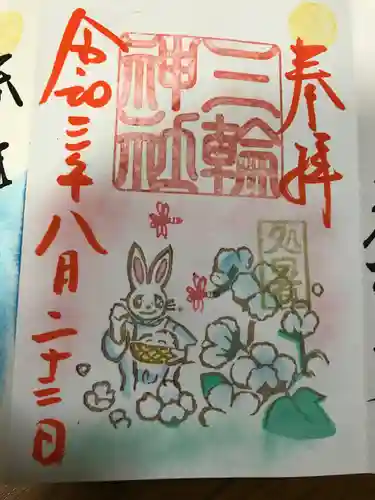 奉拝
三輪
神社
処暑
令和三年八月二十三日